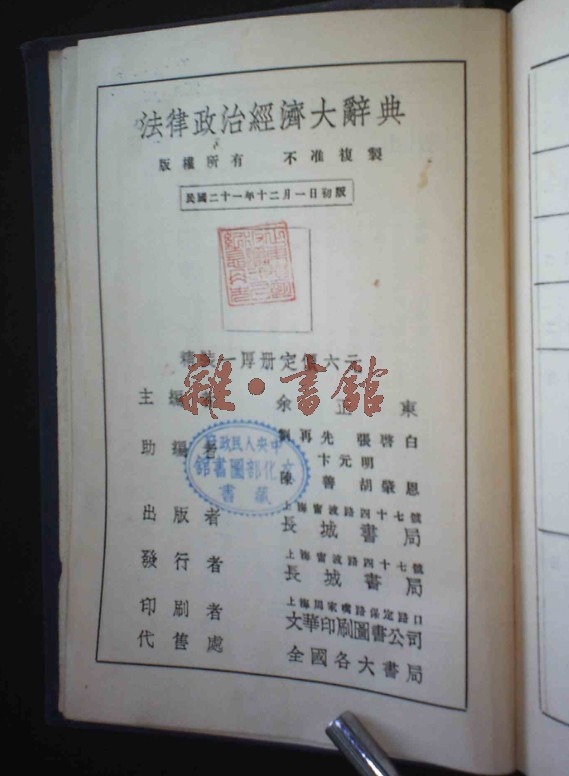 法律政治經濟大辭典
版權所有 不准複製
民國二十一年十二月一日初版
一厚册定價六元
雜·書館
主編者 余正東
助編者 劉再先 張啓白
卞元明
陳善 胡肇恩
中央人民政府
文化部圖書館
藏書
出版者 上海甯波路四十七號
長城書局
發行者 上海甯波路四十七號
長城書局
印刷者 上海周家嘴路保定路口
文華印刷圖書公司
代售處 全國各大書局